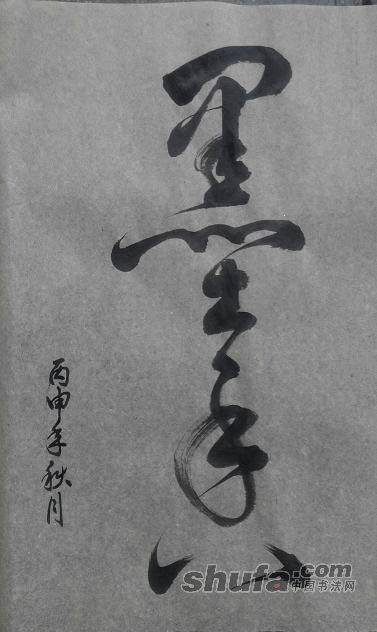 墨
丙申年秋月
shufa.com
中国书法网